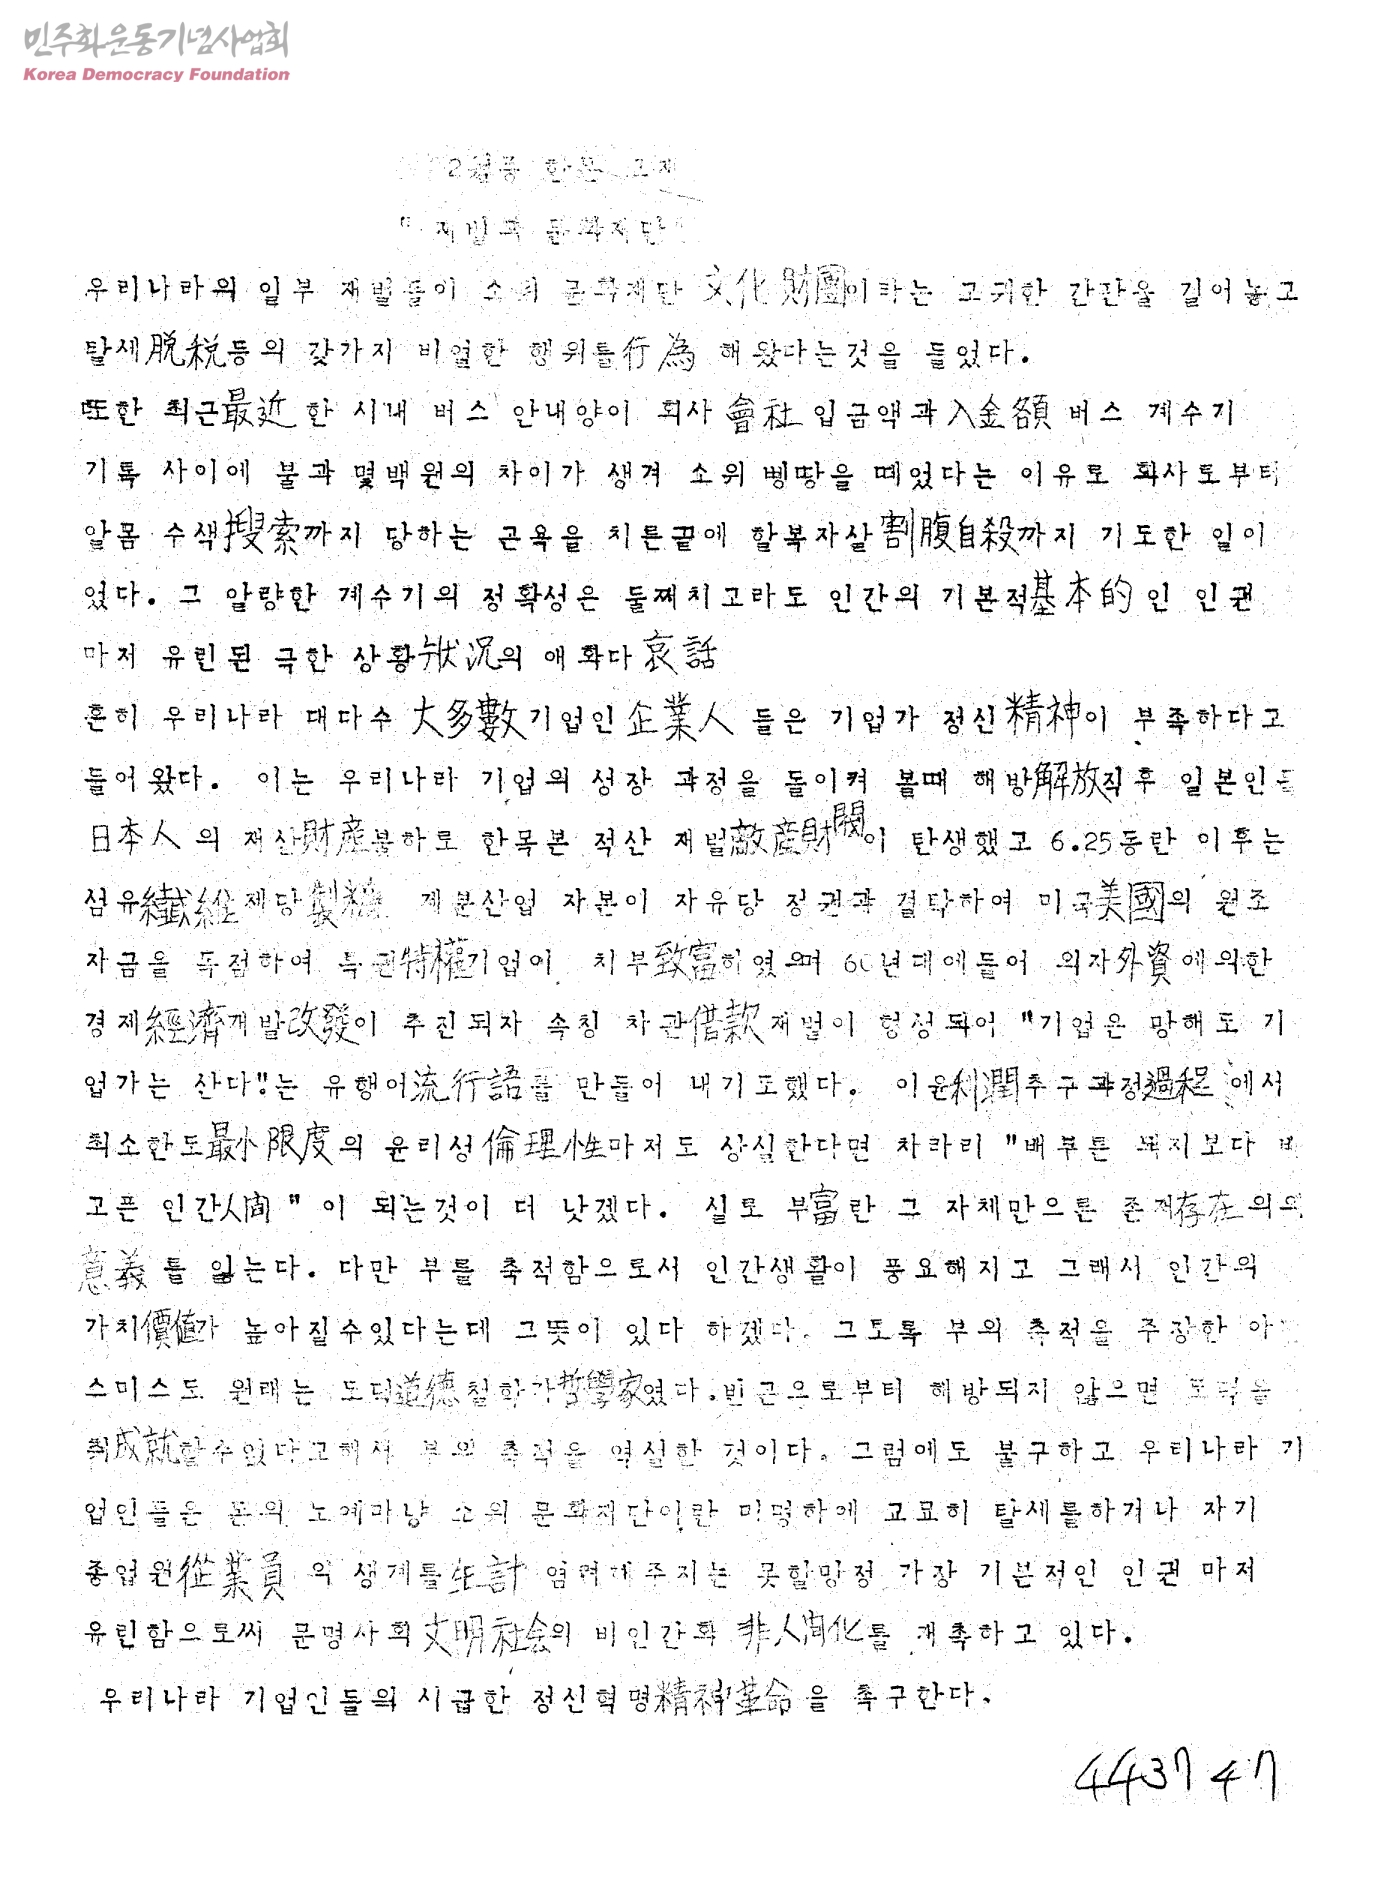 민주화운동기념사업회
Korea Democracy Foundation
2월중 한문 교재
" 재벌과 문화재단 "
우리나라의 일부 재벌들이 소위 문화재단 文化財團이라는 고귀한 간판을 걸어놓고
탈세脫稅등의 갖가지 비열한 행위를行為 해왔다는것을 들었다.
또한 최근最近 한 시내 버스 안내양이 회사 會社 입금액과入金額 버스 계수기
기록 사이에 불과 몇백원의 차이가 생겨 소위 삥땅을 떼었다는 이유로 회사로부터
알몸 수색搜索까지 당하는 곤욕을 치른끝에 할복자살割腹自殺까지 기도한 일이
있다. 그 알량한 계수기의 정확성은 둘째치고라도 인간의 기본적基本的 인 인권
마저 유린된 극한 상황狀況의 애화다哀話
흔히 우리나라 대다수 大多數기업인企業人 들은 기업가 정신精神이 부족하다고
들어왔다. 이는 우리나라 기업의 성장 과정을 돌이켜 볼때 해방解放직후 일본인들
日本人 의 재산財産불하로 한목본 적산 재벌敵産財閥이 탄생했고 6.25동란 이후는
섬유纖維 제당製糖 제분산업 자본이 자유당 정권과 결탁하여 미국美國의 원조
자금을 독점하여 특권特權기업이 치부致富하였으며 60년대에들어 외자外資에의한
경제經濟개발改發이 추진되자 속칭 차관借款재벌이 형성되어 "기업은 망해도 기
업가는 산다"는 유행어流行語를 만들어 내기도했다. 이윤利潤추구과정過程 에서
최소한도最小限度의 윤리성倫理性마저도 상실한다면 차라리 "배부른 돼지보다 배
고픈 인간人間 " 이 되는것이 더 낫겠다. 실로 부富란 그 자체만으론 존재存在의의
意義를 잃는다. 다만 부를 축적함으로서 인간생활이 풍요해지고 그래서 인간의
가치價値가 높아질수있다는데 그뜻이 있다 하겠다. 그토록 부의 축적을 주장한 아
스미스도 원래는 도덕道德철학가哲學家였다.빈곤으로부터 해방되지 않으면 도덕을
취成就할수있다고해서 부의 축적을 역설한 것이다. 그럼에도 불구하고 우리나라 기
업인들은 돈의 노예마냥 소위 문화재단이란 미명하에 교묘히 탈세를하거나 자기
종업원從業員 의 생계를生計 염려해주지는 못할망정 가장 기본적인 인권 마저
유린함으로써 문명사회文明社会의 비인간화 非人間化를 재촉하고 있다.
우리나라 기업인들의 시급한 정신혁명精神革命을 촉구한다.
4437 47